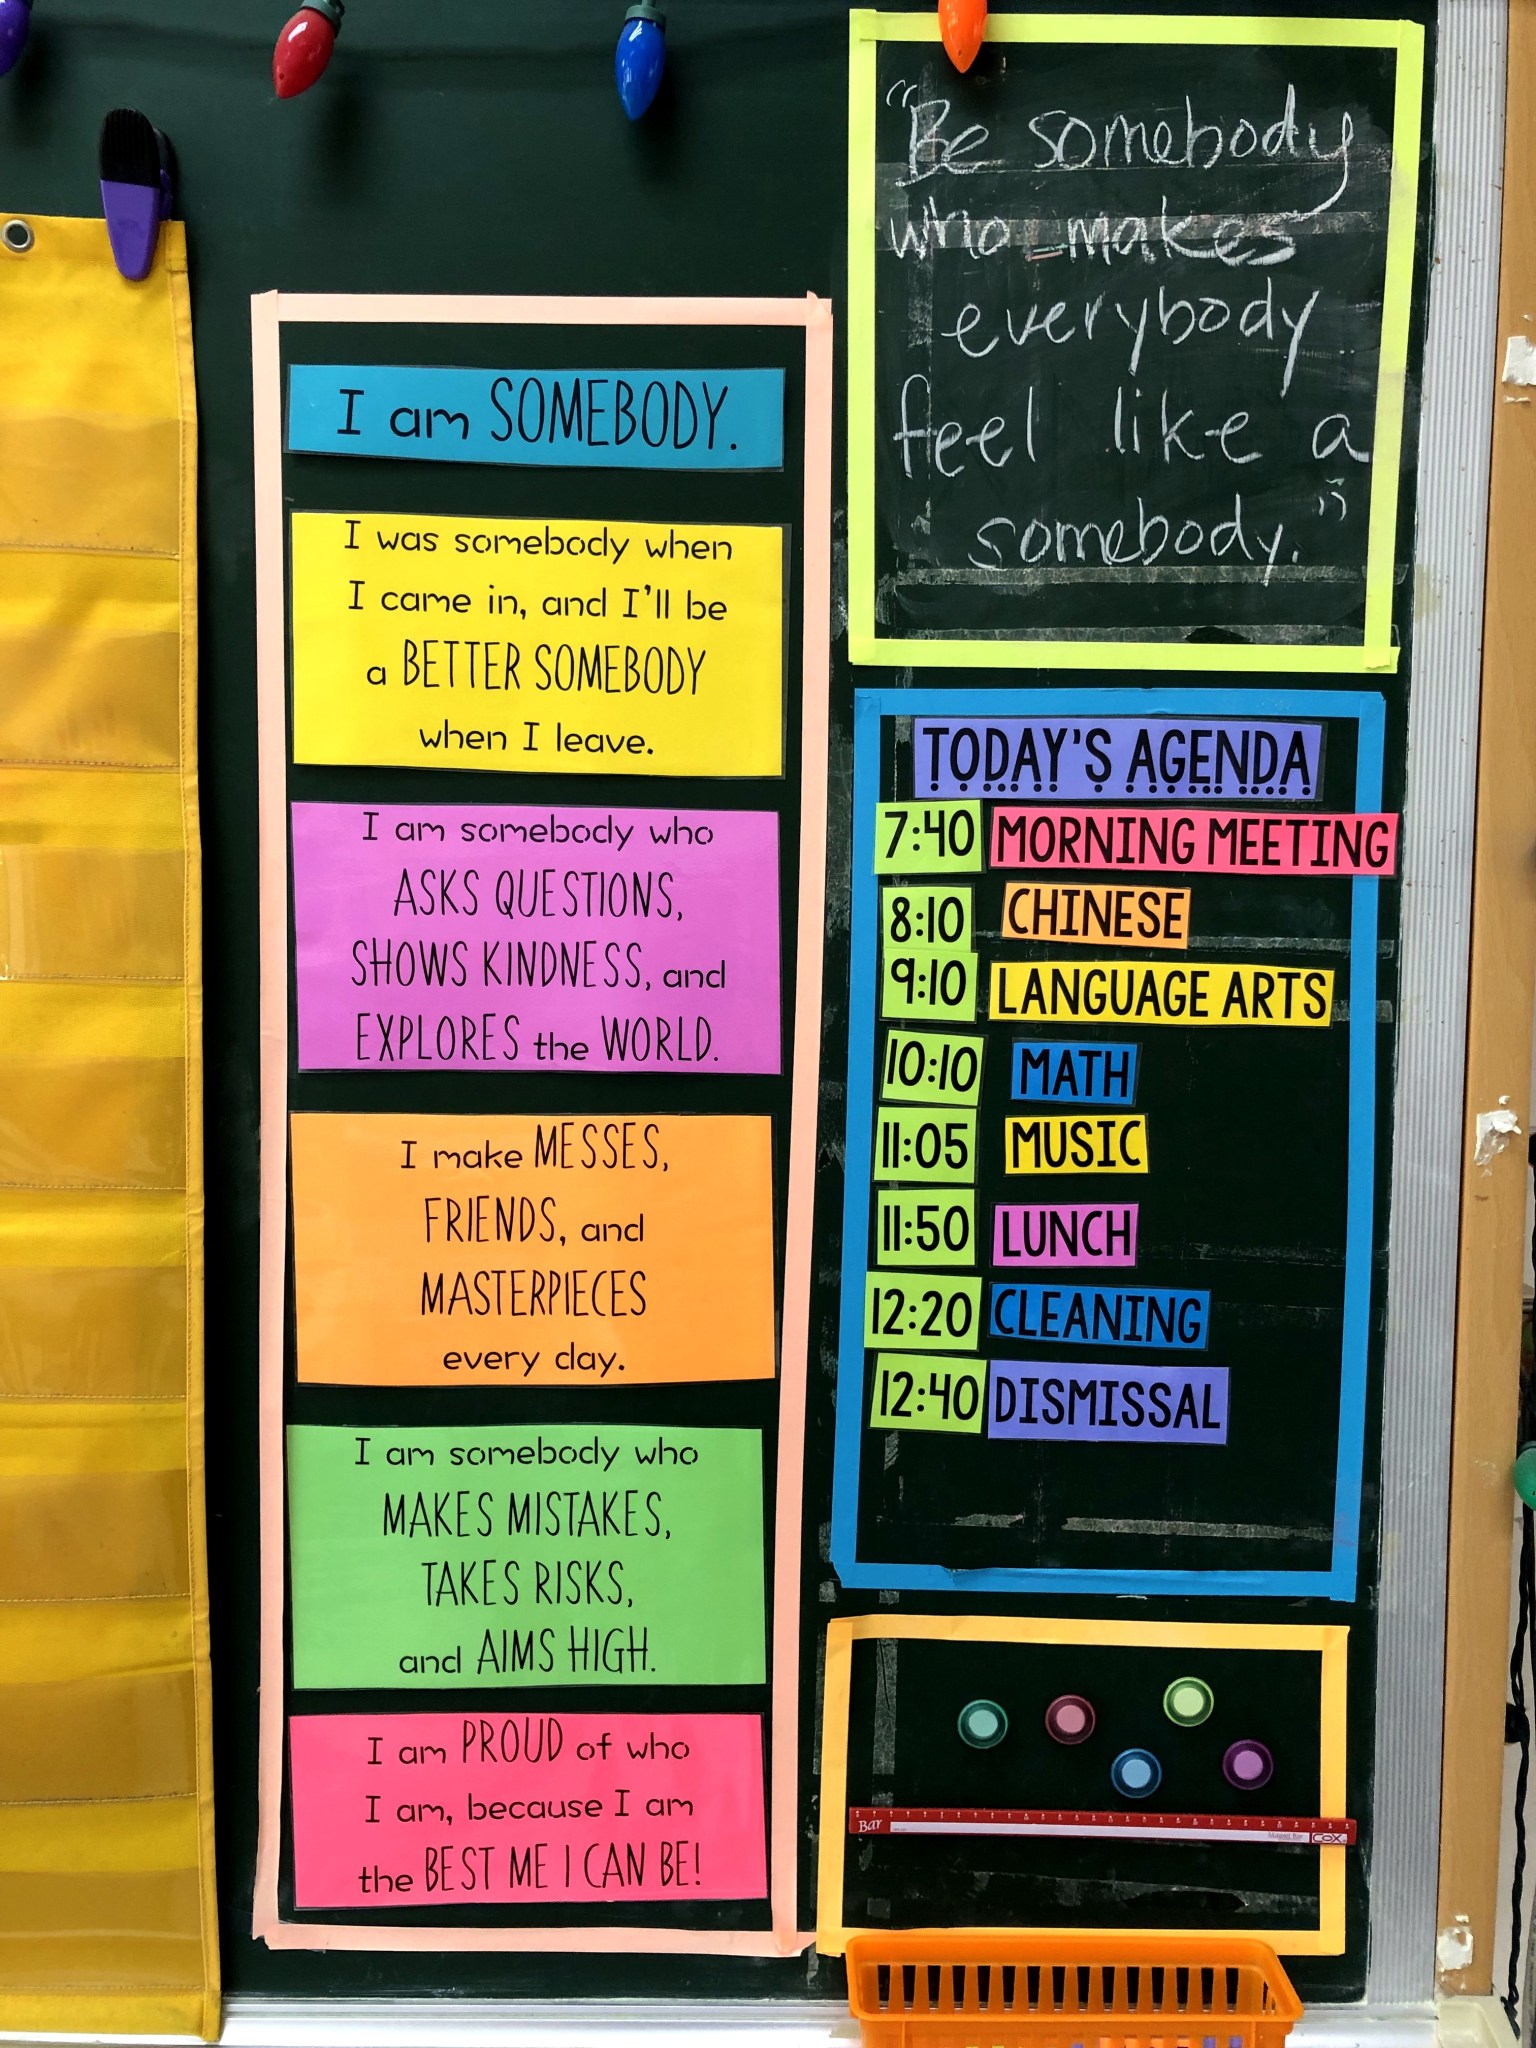 I am SOMEBODY.
I was somebody when
I came in, and I'll be
a BETTER SOMEBODY
when I leave.
I am somebody who
ASKS QUESTIONS,
SHOWS KINDNESS, and
EXPLORES the WORLD.
I make MESSES,
FRIENDS, and
MASTERPIECES
every day.
I am somebody who
MAKES MISTAKES,
TAKES RISKS,
and AIMS HIGH.
I am PROUD of who
I am, because I am
the BEST ME I CAN BE!
"Be somebody
who makes
everybody
feel like a
somebody."
TODAY'S AGENDA
7:40 MORNING MEETING
8:10 CHINESE
9:10 LANGUAGE ARTS
10:10 MATH
11:05 MUSIC
11:50 LUNCH
12:20 CLEANING
12:40 DISMISSAL
Bar
Magnet Bar COX